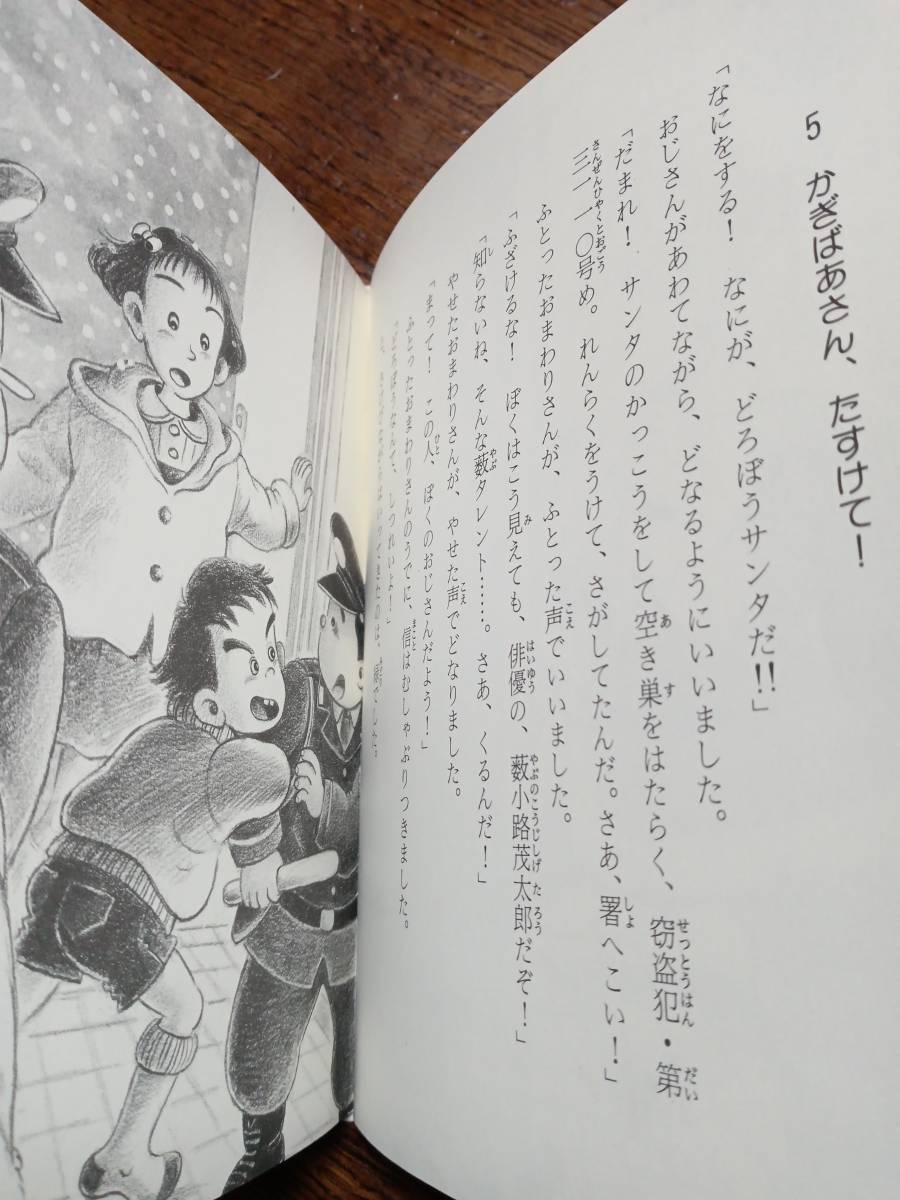 5 かざばあさん、たすけて！
「なにをする！　なにが、どろぼうサンタだ!!」
おじさんがあわてながら、どなるようにいいました。
「だまれ！　サンタのかっこうをして空き巣をはたらく、窃盗犯・第
三一一〇号め。れんらくをうけて、さがしてたんだ。さあ、署へこい！」
ふとったおまわりさんが、ふとった声でいいました。
「ふざけるな！　ぼくはこう見えても、俳優の、薮小路茂太郎だぞ！」
「知らないね、そんな薮タレント……。さあ、くるんだ！」
やせたおまわりさんが、やせた声でどなりました。
「まって！　この人、ぼくのおじさんだよう！」
ふとったおまわりさんのうでに、信はむしゃぶりつきました。
「どろぼうなんて、しつれいよ！」
と、さけびながらはいってきたのは、でした。